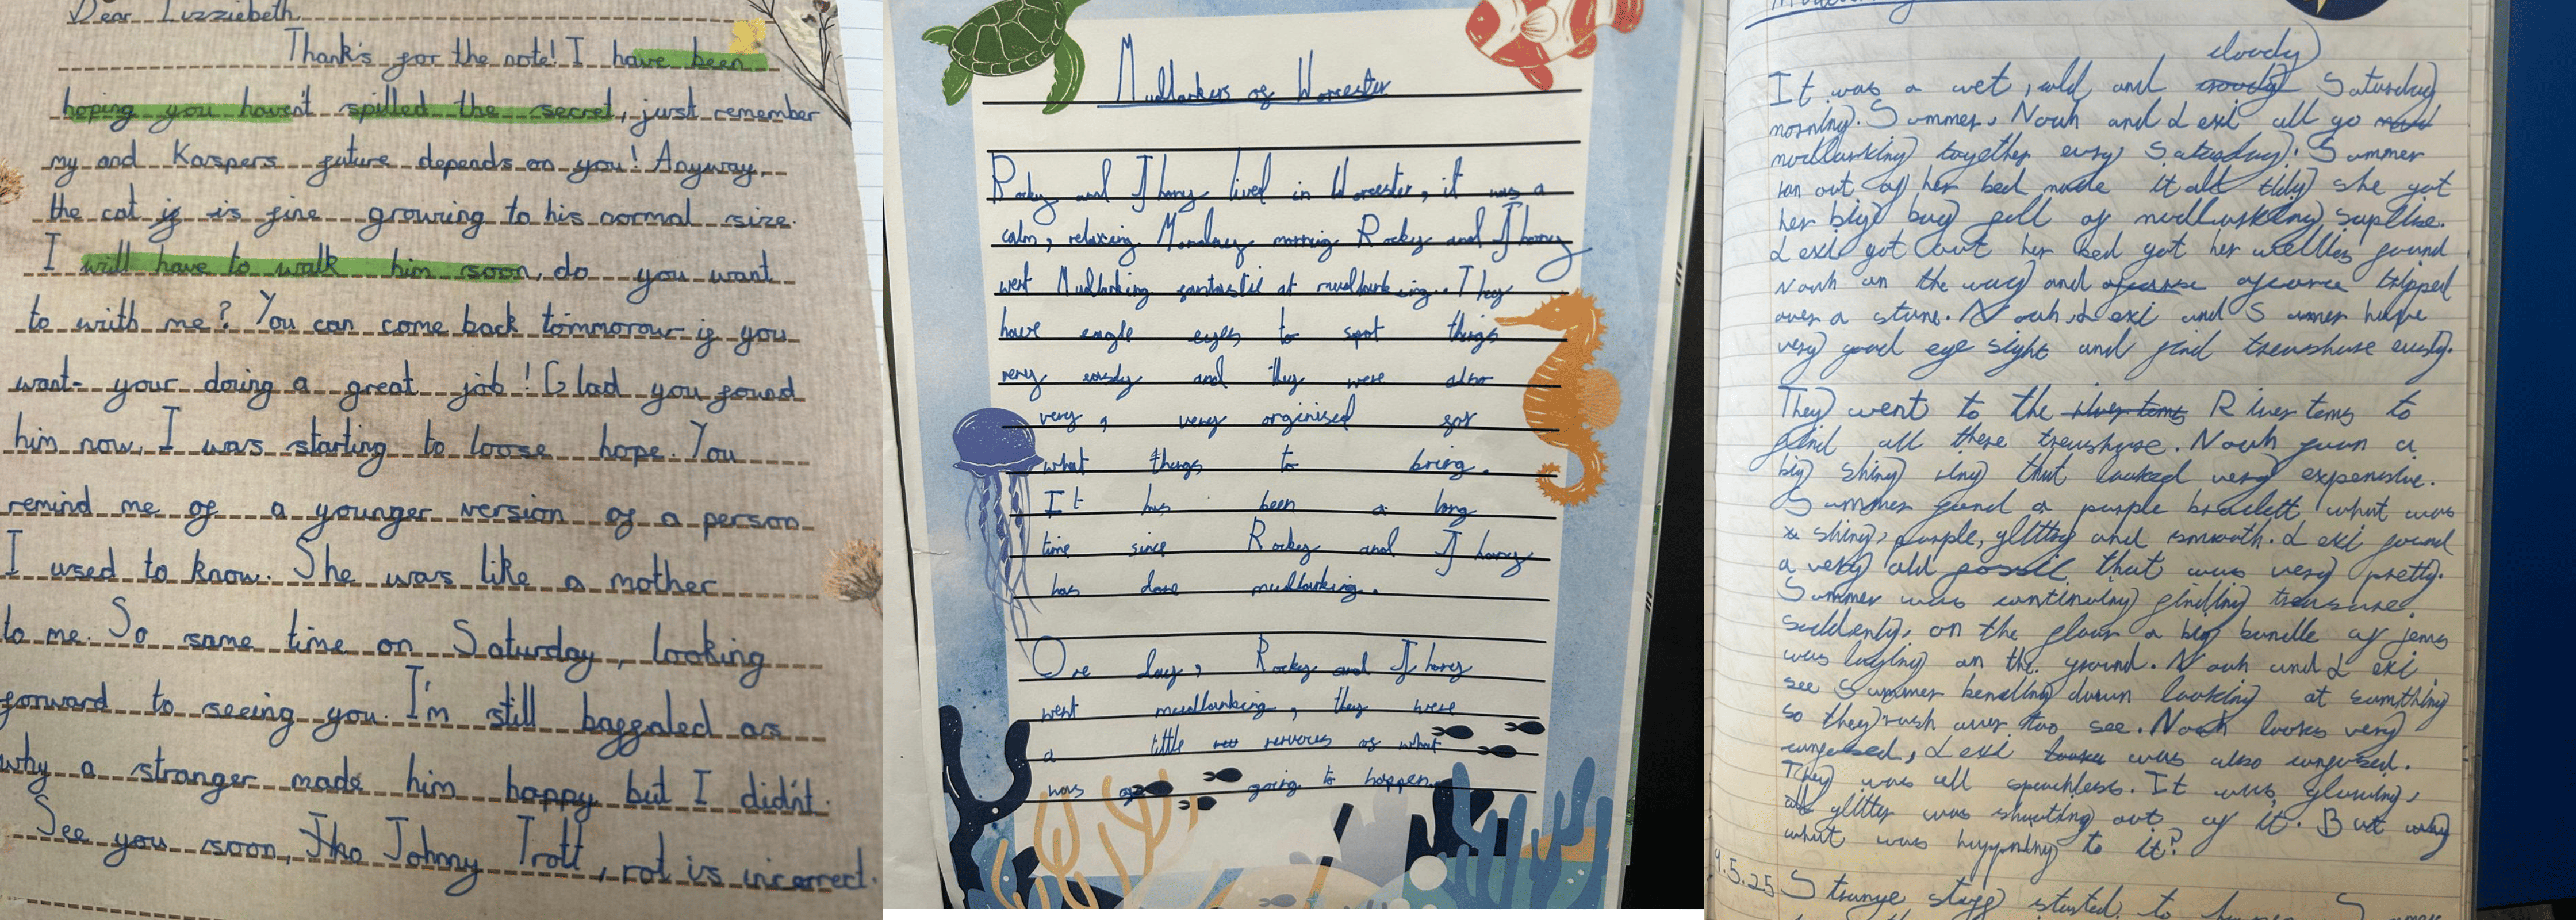 Dear Lizziebeth,
Thank's for the note! I have been
hoping you haven't spilled the secret, just remember
my and Kaspers future depends on you! Anyway,
the cat if is fine growing to his normal size.
I will have to walk him soon, do you want
to with me? You can come back tommorow if you
want- your doing a great job! Glad you found
him now, I was starting to loose hope. You
remind me of a younger version of a person
I used to know. She was like a mother
to me. So same time on Saturday, looking
forward to seeing you. I'm still baffaled as
why a stranger made him happy but I didn't.
See you soon, Johny Trott, rot is incorrect.
Mudlarkers of Worcester
Rocky and Jhony lived in Worcester, it was a
calm, relaxing Monday morning Rocky and Jhony
went Mudlarking fantastic at mudlarking. They
have eagle eyes to spot things
very easdy and they were also
very, very orginised for
what things to bring.
It has been a long
time since Rocky and Jhony
has done mudlarking.
One day, Rocky and Jhony
went mudlarking, they were
a little nervous of what
was going to happen.
cloudy
It was a wet, cold and Saturday
morning. Summer, Noah and Lexi all go
mudlarking together every Saturday. Summer
ran out of her bed made it all tidy she got
her big bag full of mudlarking suplise.
Lexi got out her bed got her wellies found
Noah on the way and ofcorse ofcorce tripped
over a stone. Noah, Lexi and Summer have
very good eye sight and find treashure easly.
They went to the river tems River tems to
find all there treashure. Noah foun a
big shiny ring that looked very expensive.
Summer found a purple braclett what was
shiny, purple, glittry and smooth. Lexi found
a very old fossil that was very pretty.
Summer was continuing finding treasure.
suddenly, on the floor a big bundle of jems
was laying on the ground. Noah and Lexi
see Summer bending down looking at somthing
so they rush over too see. Noah looks very
confused, Lexi looks was also confused.
They was all speachless. It was glowing,
all glitter was shooting out of it. But why
what was happoning to it?
.5.25 Strange stuff started to